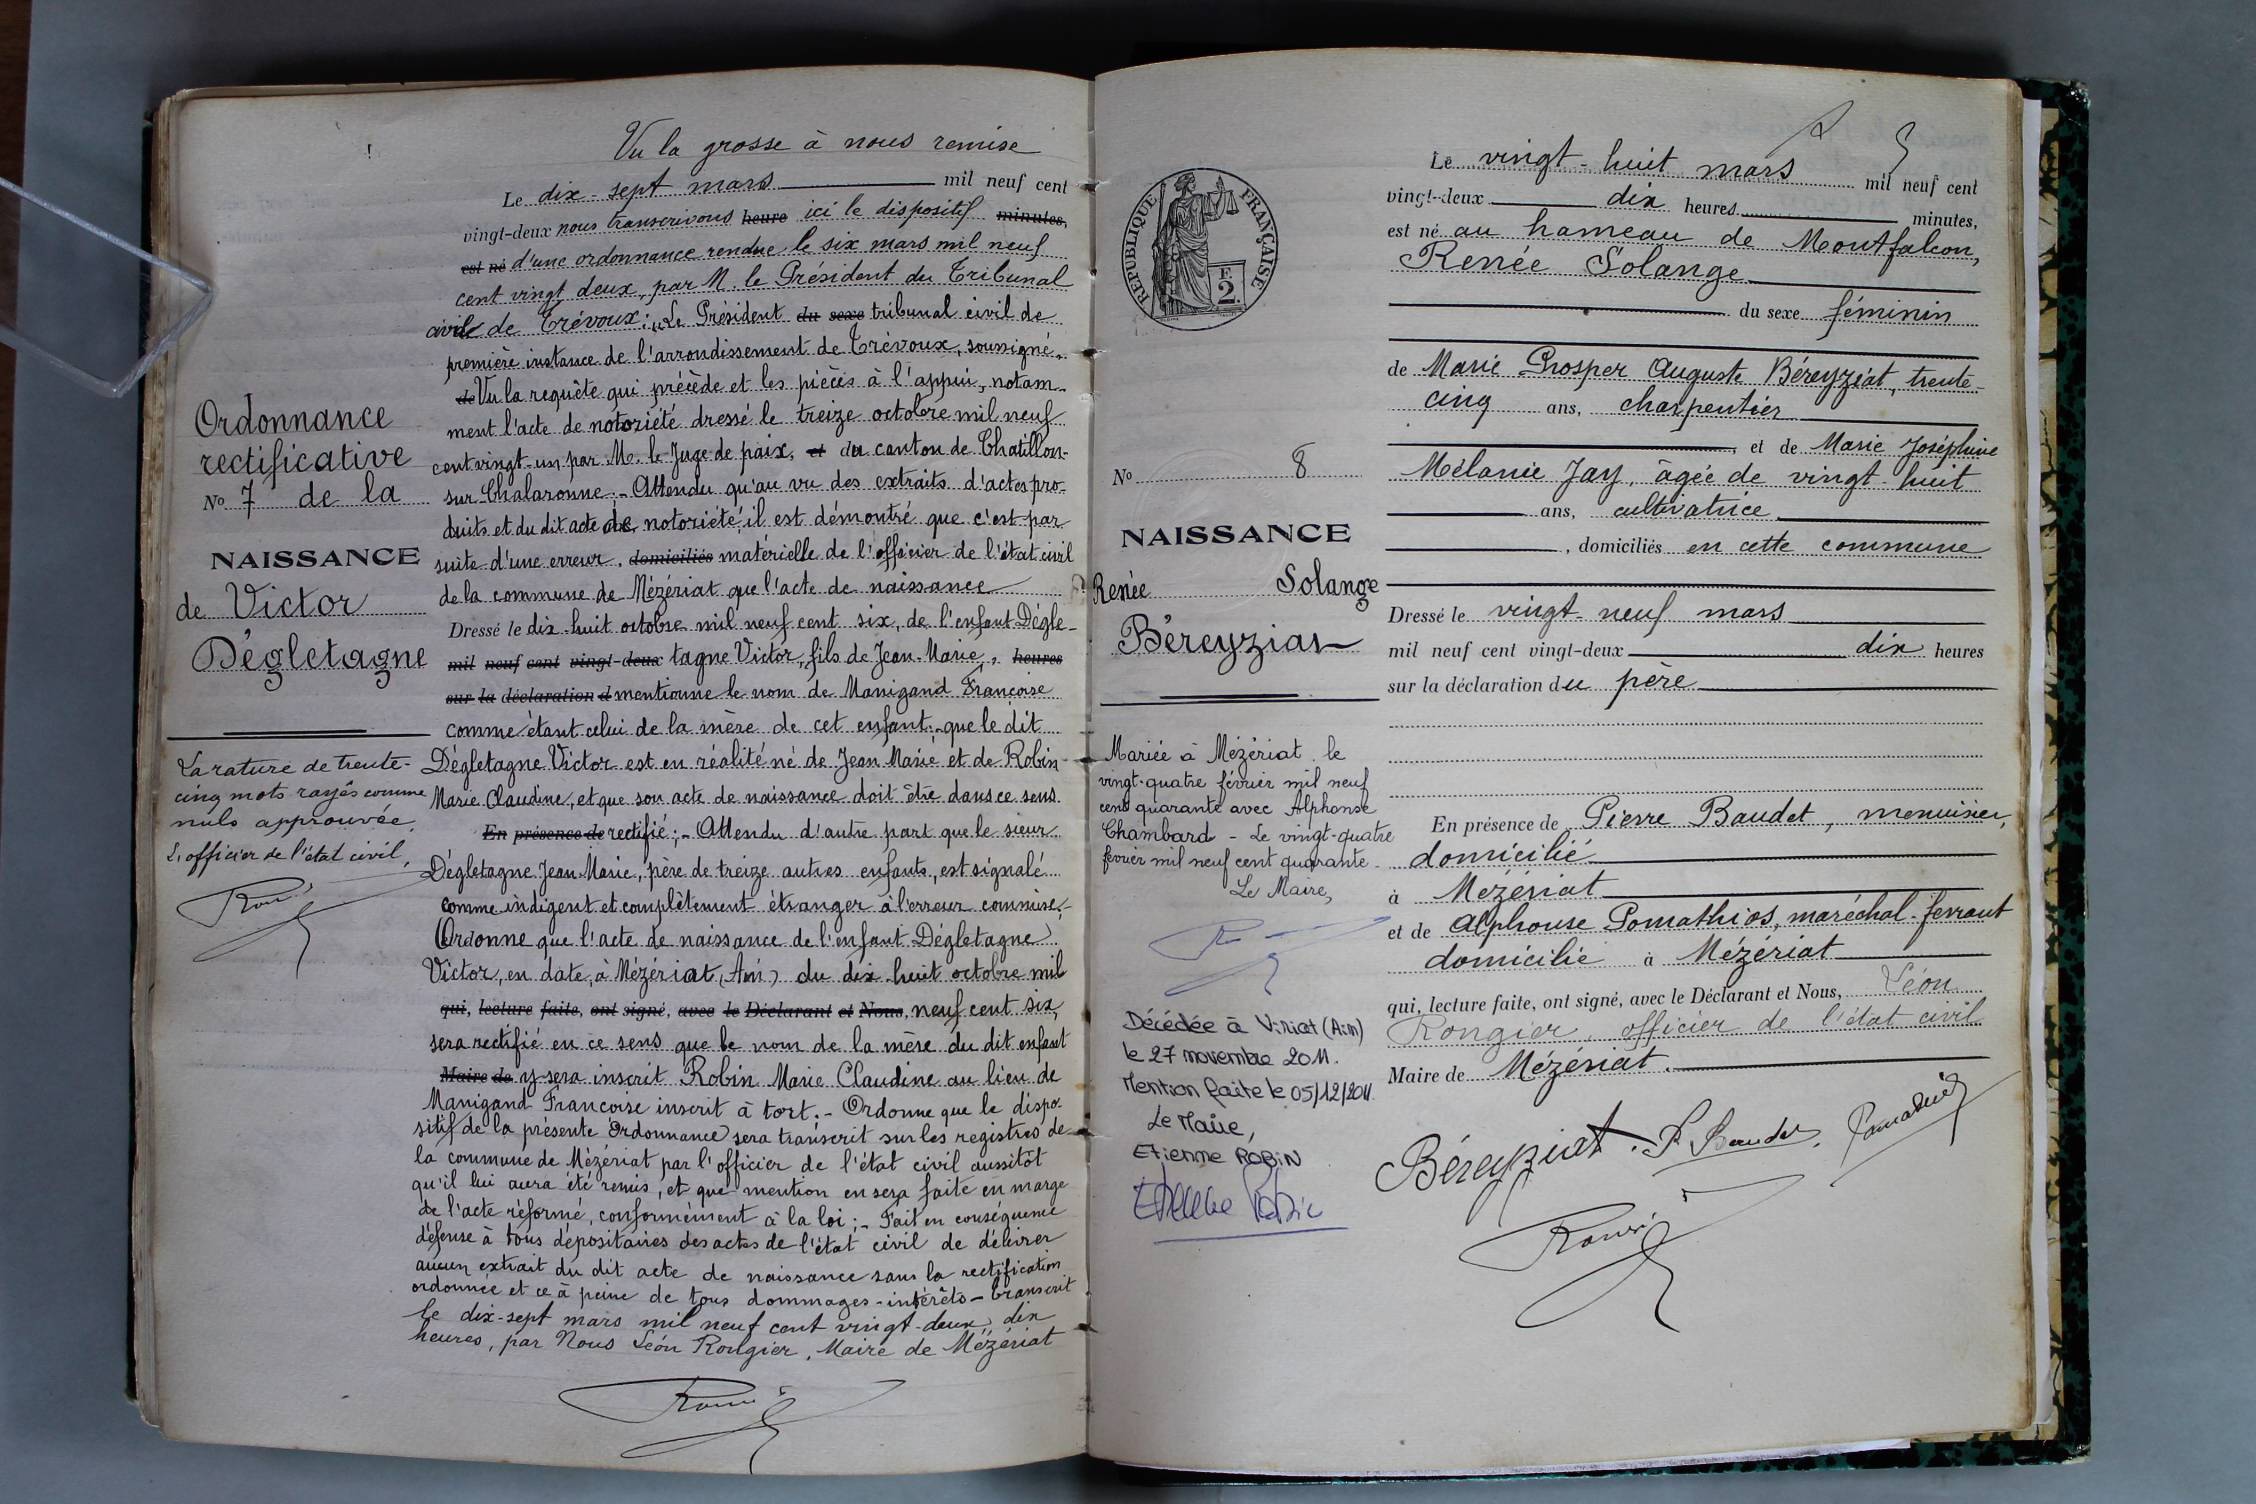 Vu la grosse à nous remise
Le dix-sept mars mil neuf cent
vingt-deux nous transcrivons heure ici le dispositif minutes,
est né d'une ordonnance rendue le six mars mil neuf
cent vingt deux, par M. le Président du Tribunal
civil de Trévoux : "Le Président du sexe tribunal civil de
première instance de l'arrondissement de Trévoux, soussigné.
de Vu la requête qui précède et les pièces à l'appui, notam-
ment l'acte de notoriété dressé le treize octobre mil neuf
cent vingt-un par M. le Juge de paix, et du canton de Chatillon-
sur Chalaronne.- Attendu qu'au vu des extraits d'actes pro-
duits et du dit acte de notoriété, il est démontré que c'est par
suite d'une erreur, domiciliés matérielle de l'officier de l'état civil
de la commune de Mézériat que l'acte de naissance
Dressé le dix-huit octobre mil neuf cent six, de l'enfant Dégle-
mil neuf cent vingt-deux tagne Victor, fils de Jean-Marie, heures
sur la déclaration d mentionne le nom de Manigand Françoise
comme étant celui de la mère de cet enfant;- que le dit
Dégletagne Victor est en réalité né de Jean Marie et de Robin
Marie Claudine, et que son acte de naissance doit être dans ce sens
En présence de rectifié;- Attendu d'autre part que le sieur
Dégletagne Jean Marie, père de treize autres enfants, est signalé
comme indigent et complètement étranger à l'erreur commise,-
Ordonne que l'acte de naissance de l'enfant Dégletagne
Victor, en date, à Mézériat (Ain) du dix huit octobre mil
qui, lecture faite, ont signé, avec le Déclarant et Nous, neuf cent six,
sera rectifié en ce sens que le nom de la mère du dit enfant
Maire de y sera inscrit Robin Marie Claudine au lieu de
Manigand Françoise inscrit à tort.- Ordonne que le dispo-
sitif de la présente Ordonnance sera transcrit sur les registres de
la commune de Mézériat par l'officier de l'état civil aussitôt
qu'il lui aura été remis, et que mention en sera faite en marge
de l'acte réformé, conformément à la loi;- Fait en conséquence
défense à tous dépositaires des actes de l'état civil de délivrer
aucun extrait du dit acte de naissance sans la rectification
ordonnée et ce à peine de tous dommages-intérêts - Transcrit
le dix-sept mars mil neuf cent vingt-deux, dix
heures, par Nous Léon Rongier, Maire de Mézériat
Ordonnance
rectificative
No 7 de la
NAISSANCE
de Victor
Dégletagne
La rature de trente-
cinq mots rayés comme
nuls approuvée.
L'officier de l'état civil,
REPUBLIQUE FRANÇAISE
F.
2.
No 8
NAISSANCE
Renée Solange
Béreyziat
Mariée à Mézériat le
vingt-quatre février mil neuf
cent quarante avec Alphonse
Chambard - Le vingt-quatre
février mil neuf cent quarante -
Le Maire,
Décédée à Viriat (Ain)
le 27 novembre 2011.
Mention faite le 05/12/2011.
Le Maire,
Etienne ROBIN
Le vingt-huit mars mil neuf cent
vingt-deux dix heures minutes,
est né au hameau de Montfalcon,
Renée Solange
du sexe féminin
de Marie Prosper Auguste Béreyziat, trente-
cinq ans, charpentier
et de Marie Joséphine
Mélanie Jay, âgée de vingt-huit
ans, cultivatrice
, domiciliés en cette commune
Dressé le vingt-neuf mars
mil neuf cent vingt-deux dix heures
sur la déclaration du père
En présence de Pierre Baudet, menuisier,
domicilié
à Mézériat
et de Alphonse Pomathios, maréchal-ferrant
domicilié à Mézériat
qui, lecture faite, ont signé, avec le Déclarant et Nous, Léon
Rongier, officier de l'état civil
Maire de Mézériat.
Béreyziat. P. Baudet. Pomathios